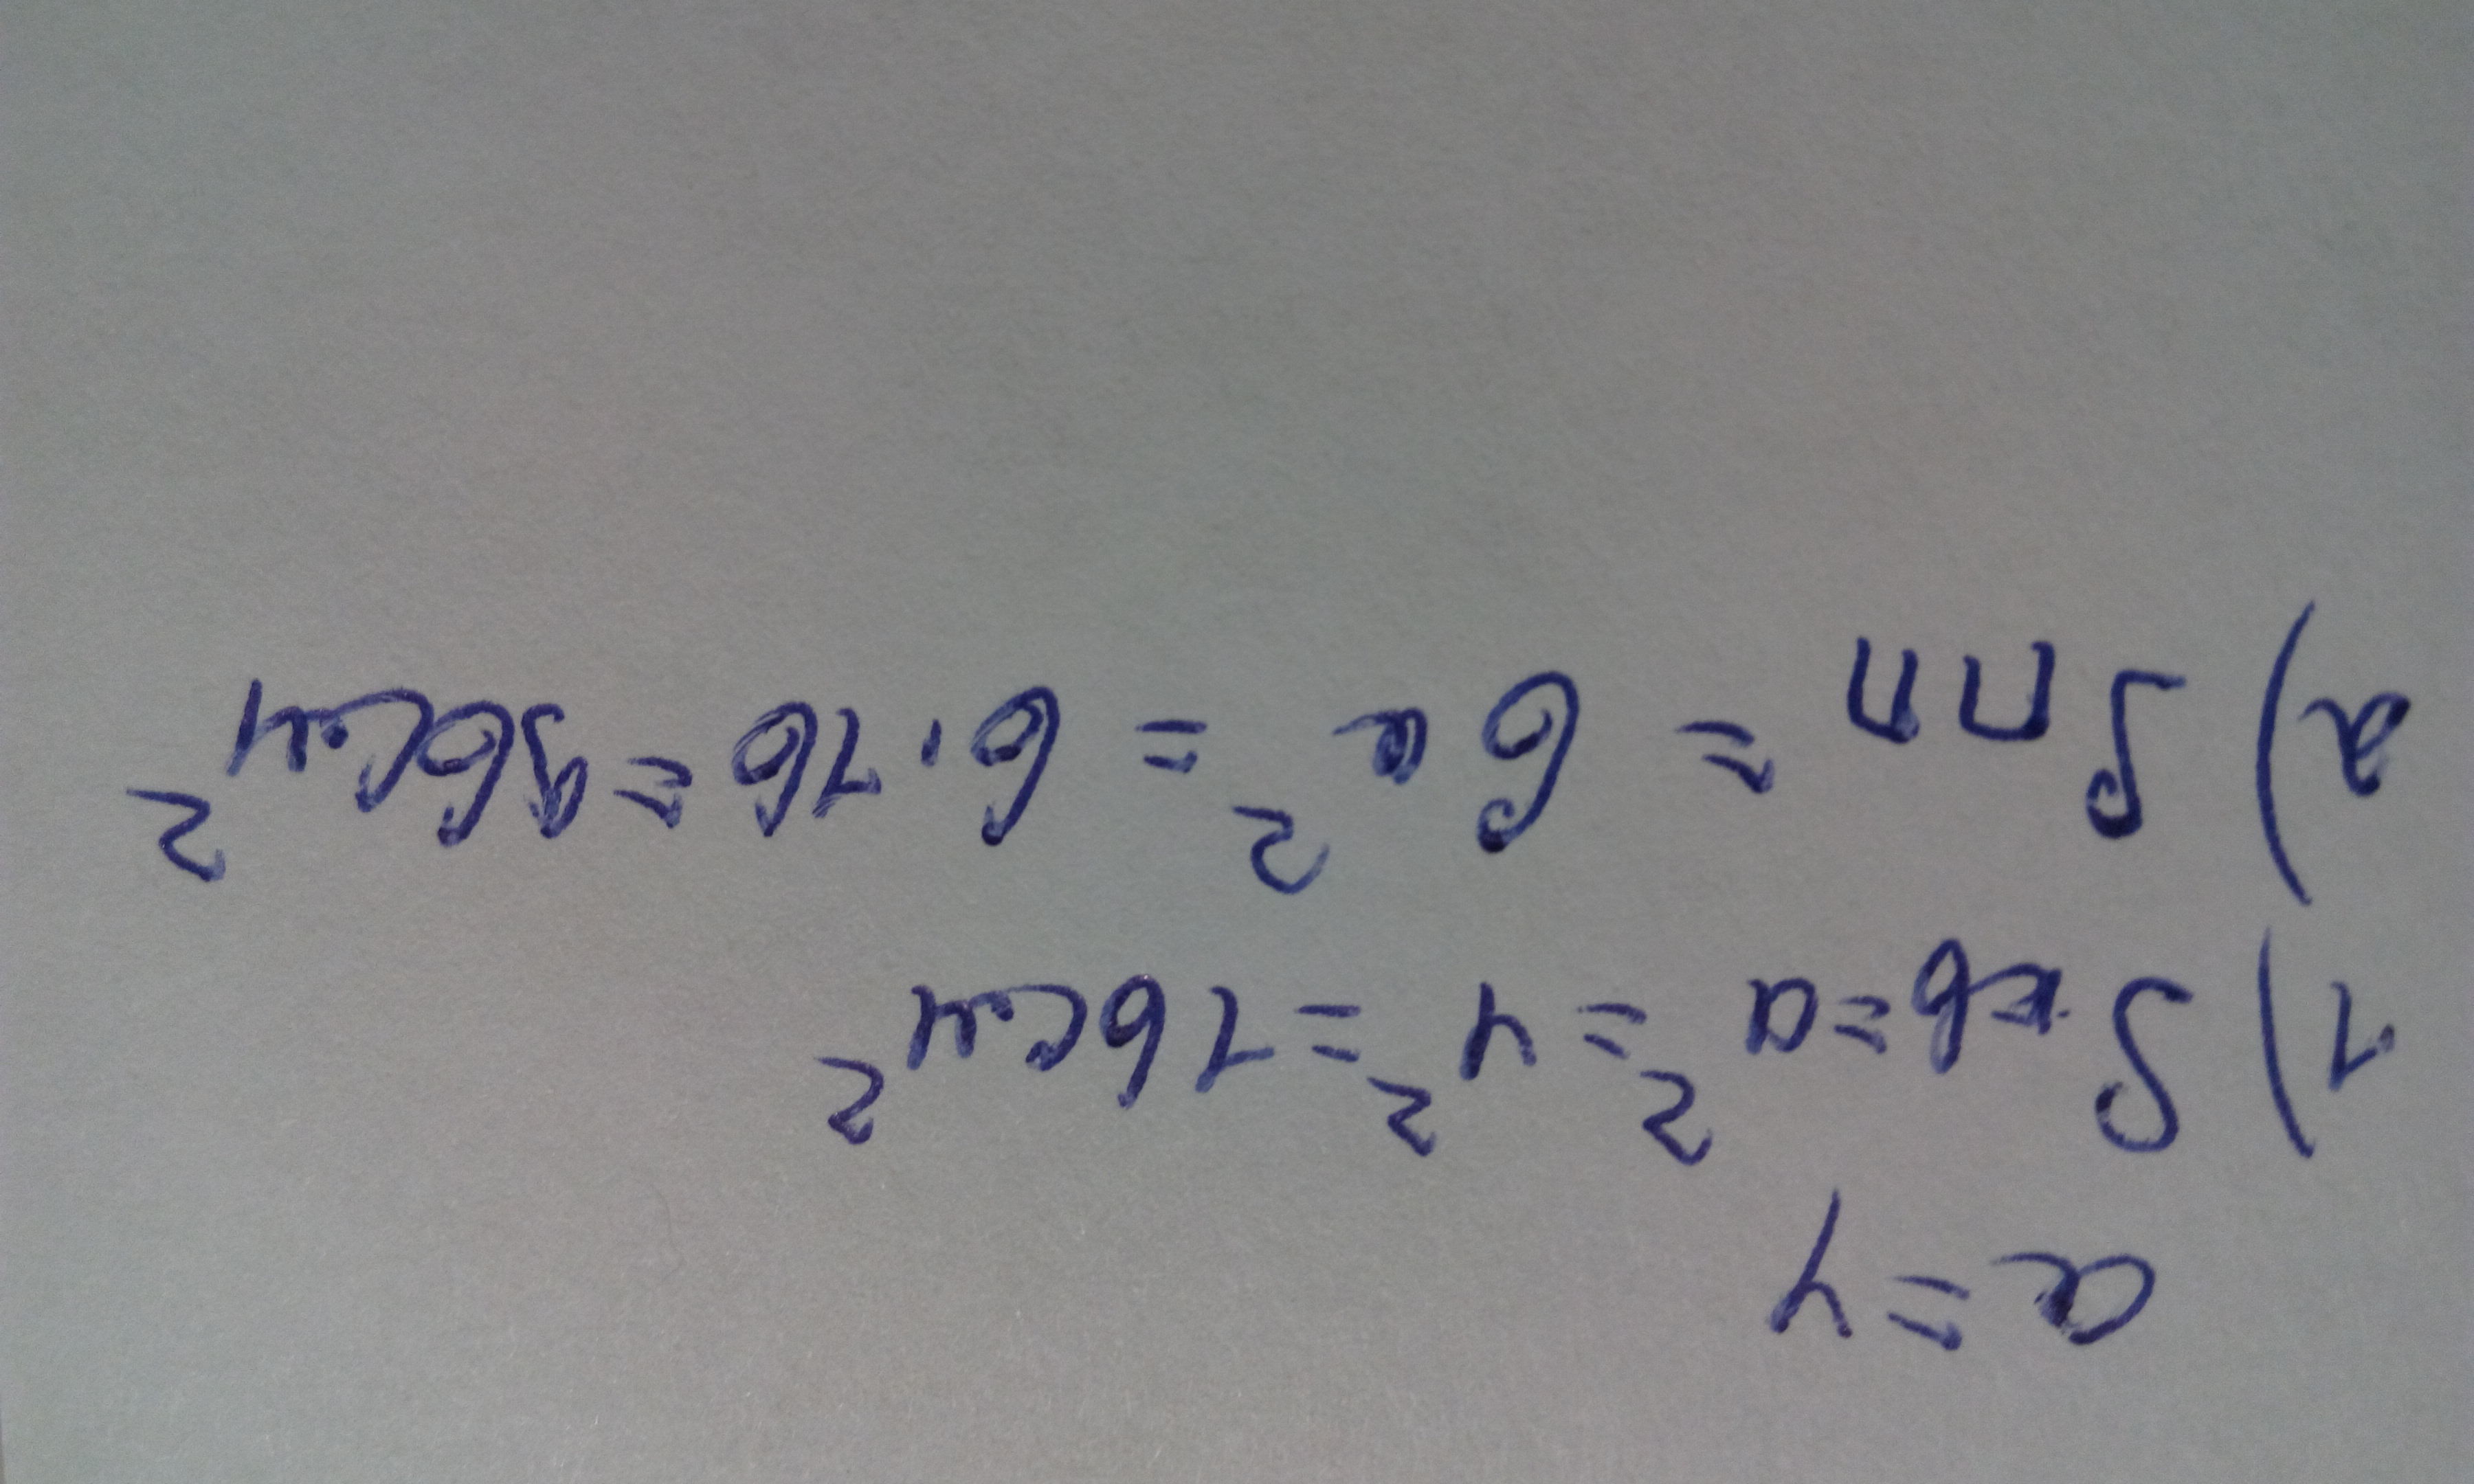 a = 4
1) Sкв = a² = 4² = 16см²
2) Sпп = 6a² = 6·16 = 96см²